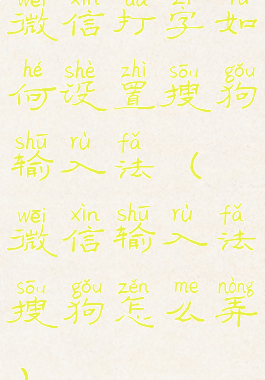 wēi xìn dǎ zì rú
微信打字如
hé shè zhì sōu gǒu
何设置搜狗
shū rù fǎ
输入法（
wēi xìn shū rù fǎ
微信输入法
sōu gǒu zěn me nòng
搜狗怎么弄
）